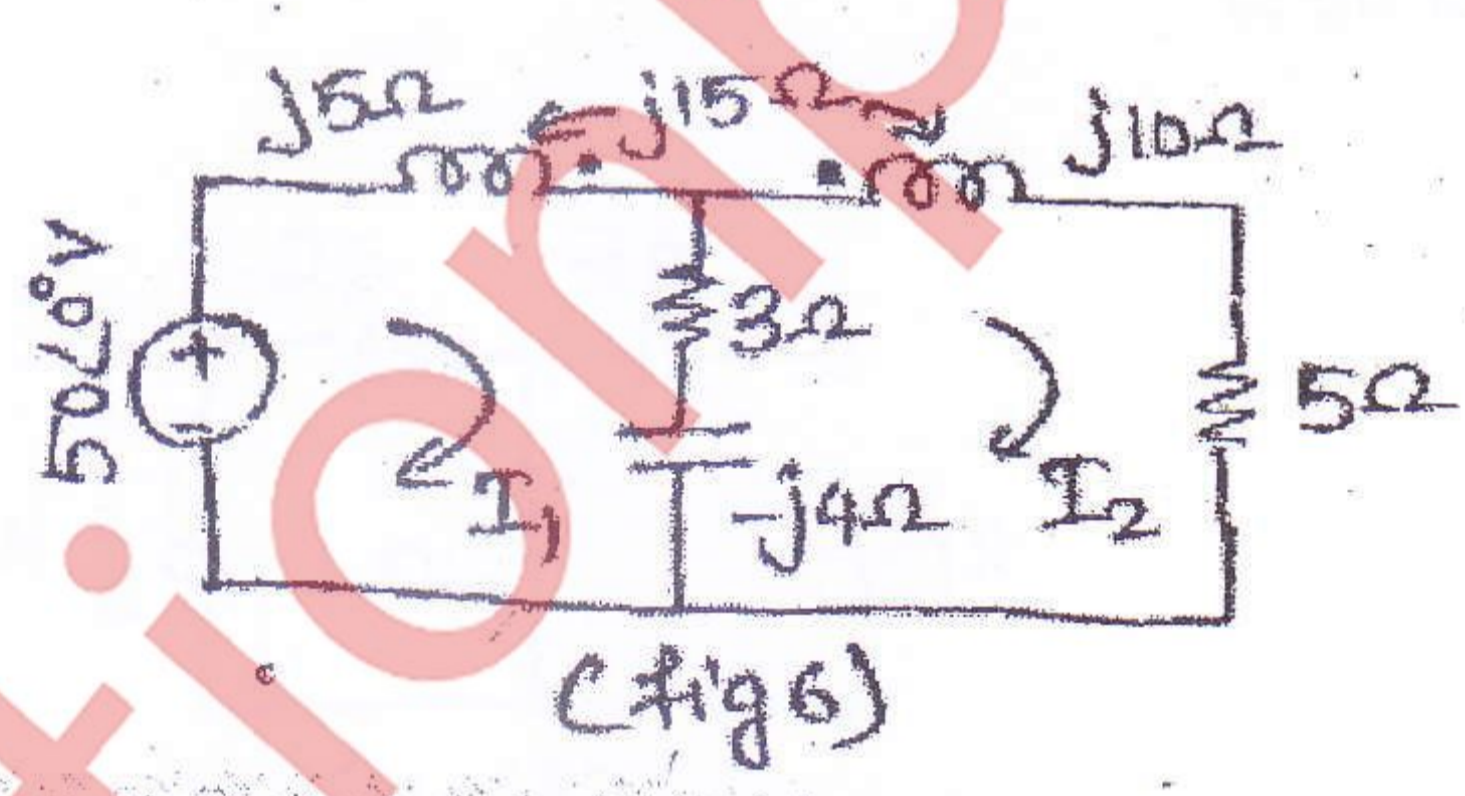 j5Ω
j15Ω
j10Ω
50∠0°V
3Ω
5Ω
I₁
-j4Ω
I₂
(fig 6)